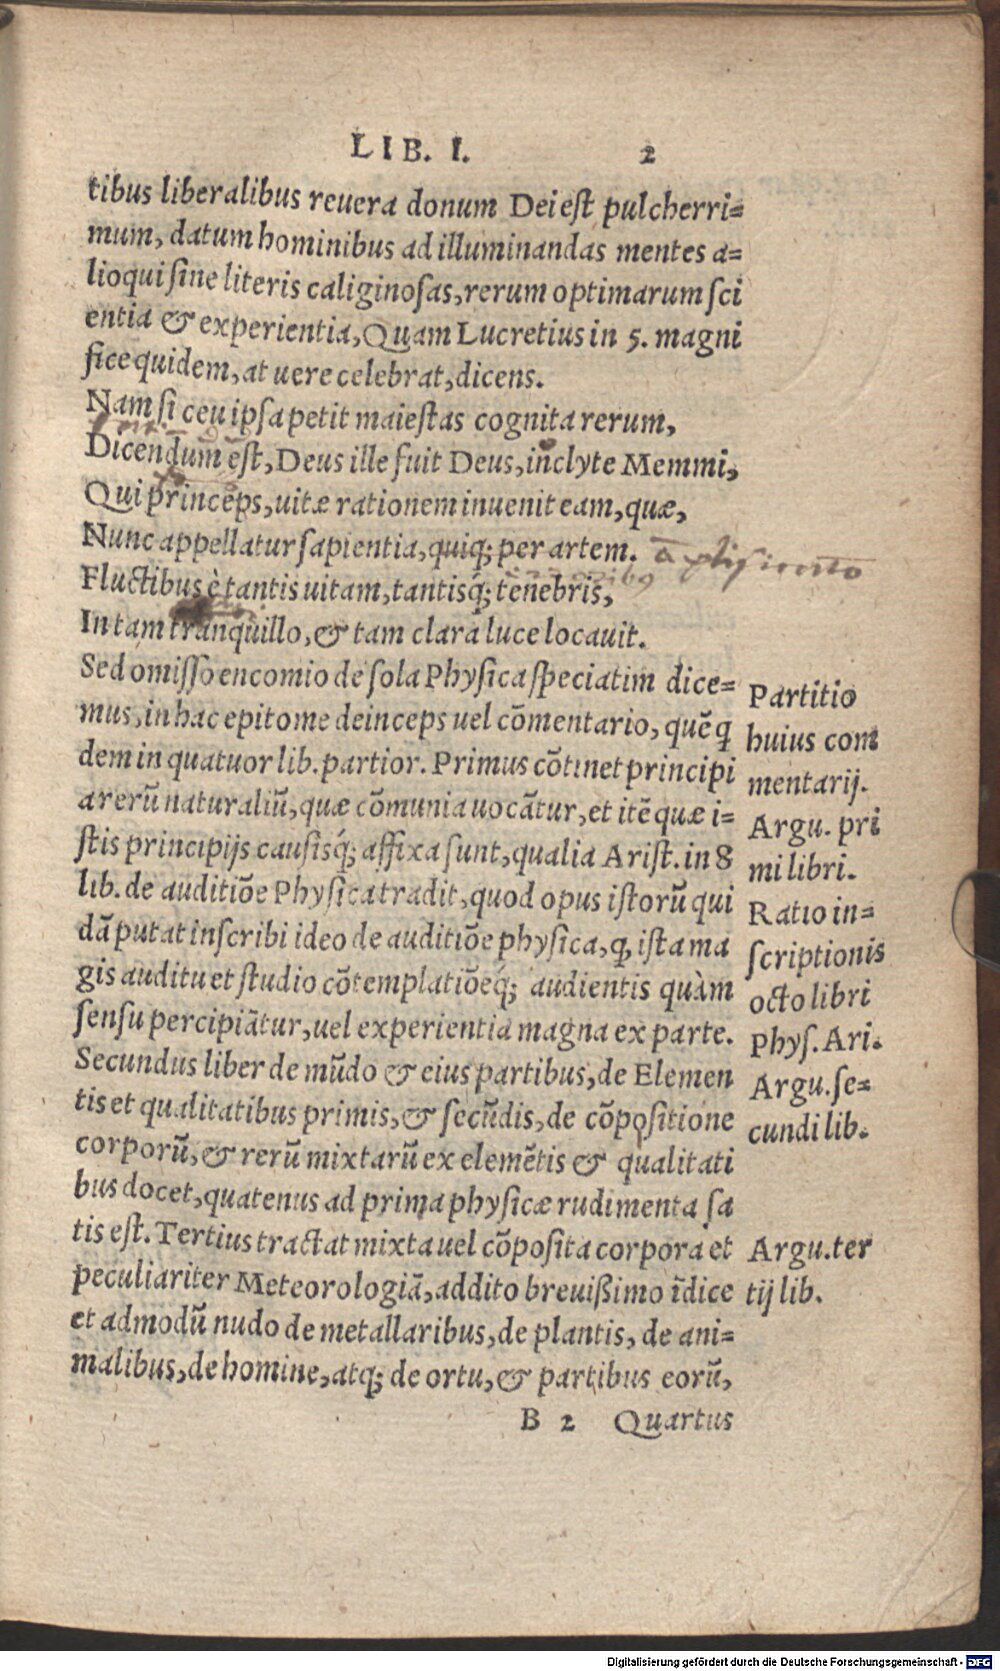 LIB. I. 2
tibus liberalibus reuera donum Dei est pulcherri=
mum, datum hominibus ad illuminandas mentes a=
lioqui sine literis caliginosas, rerum optimarum sci
entia & experientia, Quam Lucretius in 5. magni
fice quidem, at uere celebrat, dicens.
Nam si ceu ipsa petit maiestas cognita rerum,
Dicendum est, Deus ille fuit Deus, inclyte Memmi,
Qui princeps, uitæ rationem inuenit eam, quæ,
Nunc appellatur sapientia, quiq; per artem.
Fluctibus è tantis uitam, tantisq́; tenebris,
In tam tranquillo, & tam clara luce locauit.
Sed omisso encomio de sola Physica speciatim dice=
mus, in hac epitome deinceps uel cõmentario, quẽ q
dem in quatuor lib. partior. Primus cõtinet principi
a rerũ naturaliũ, quæ cõmunia uocãtur, et itẽ quæ i=
stis principijs causisq́; affixa sunt, qualia Arist. in 8
lib. de auditiõe Physica tradit, quod opus istorũ qui
dã putat inscribi ideo de auditiõe physica, ꝙ ista ma
gis auditu et studio cõtemplatiõeq́; audientis quàm
sensu percipiãtur, uel experientia magna ex parte.
Secundus liber de mũdo & eius partibus, de Elemen
tis et qualitatibus primis, & secũdis, de cõpositione
corporũ, & rerũ mixtarũ ex elemẽtis & qualitati
bus docet, quatenus ad prima physicæ rudimenta sa
tis est. Tertius tractat mixta uel cõposita corpora et
peculiariter Meteorologiã, addito breuißimo ĩdice
et admodũ nudo de metallaribus, de plantis, de ani=
malibus, de homine, atq; de ortu, & partibus eorũ,
B 2 Quartus
Partitio
huius com
mentarij.
Argu. pri
mi libri.
Ratio in=
scriptionis
octo libri
Phys. Ari.
Argu. se=
cundi lib.
Argu. ter
tij lib.
Digitalisierung gefördert durch die Deutsche Forschungsgemeinschaft - DFG